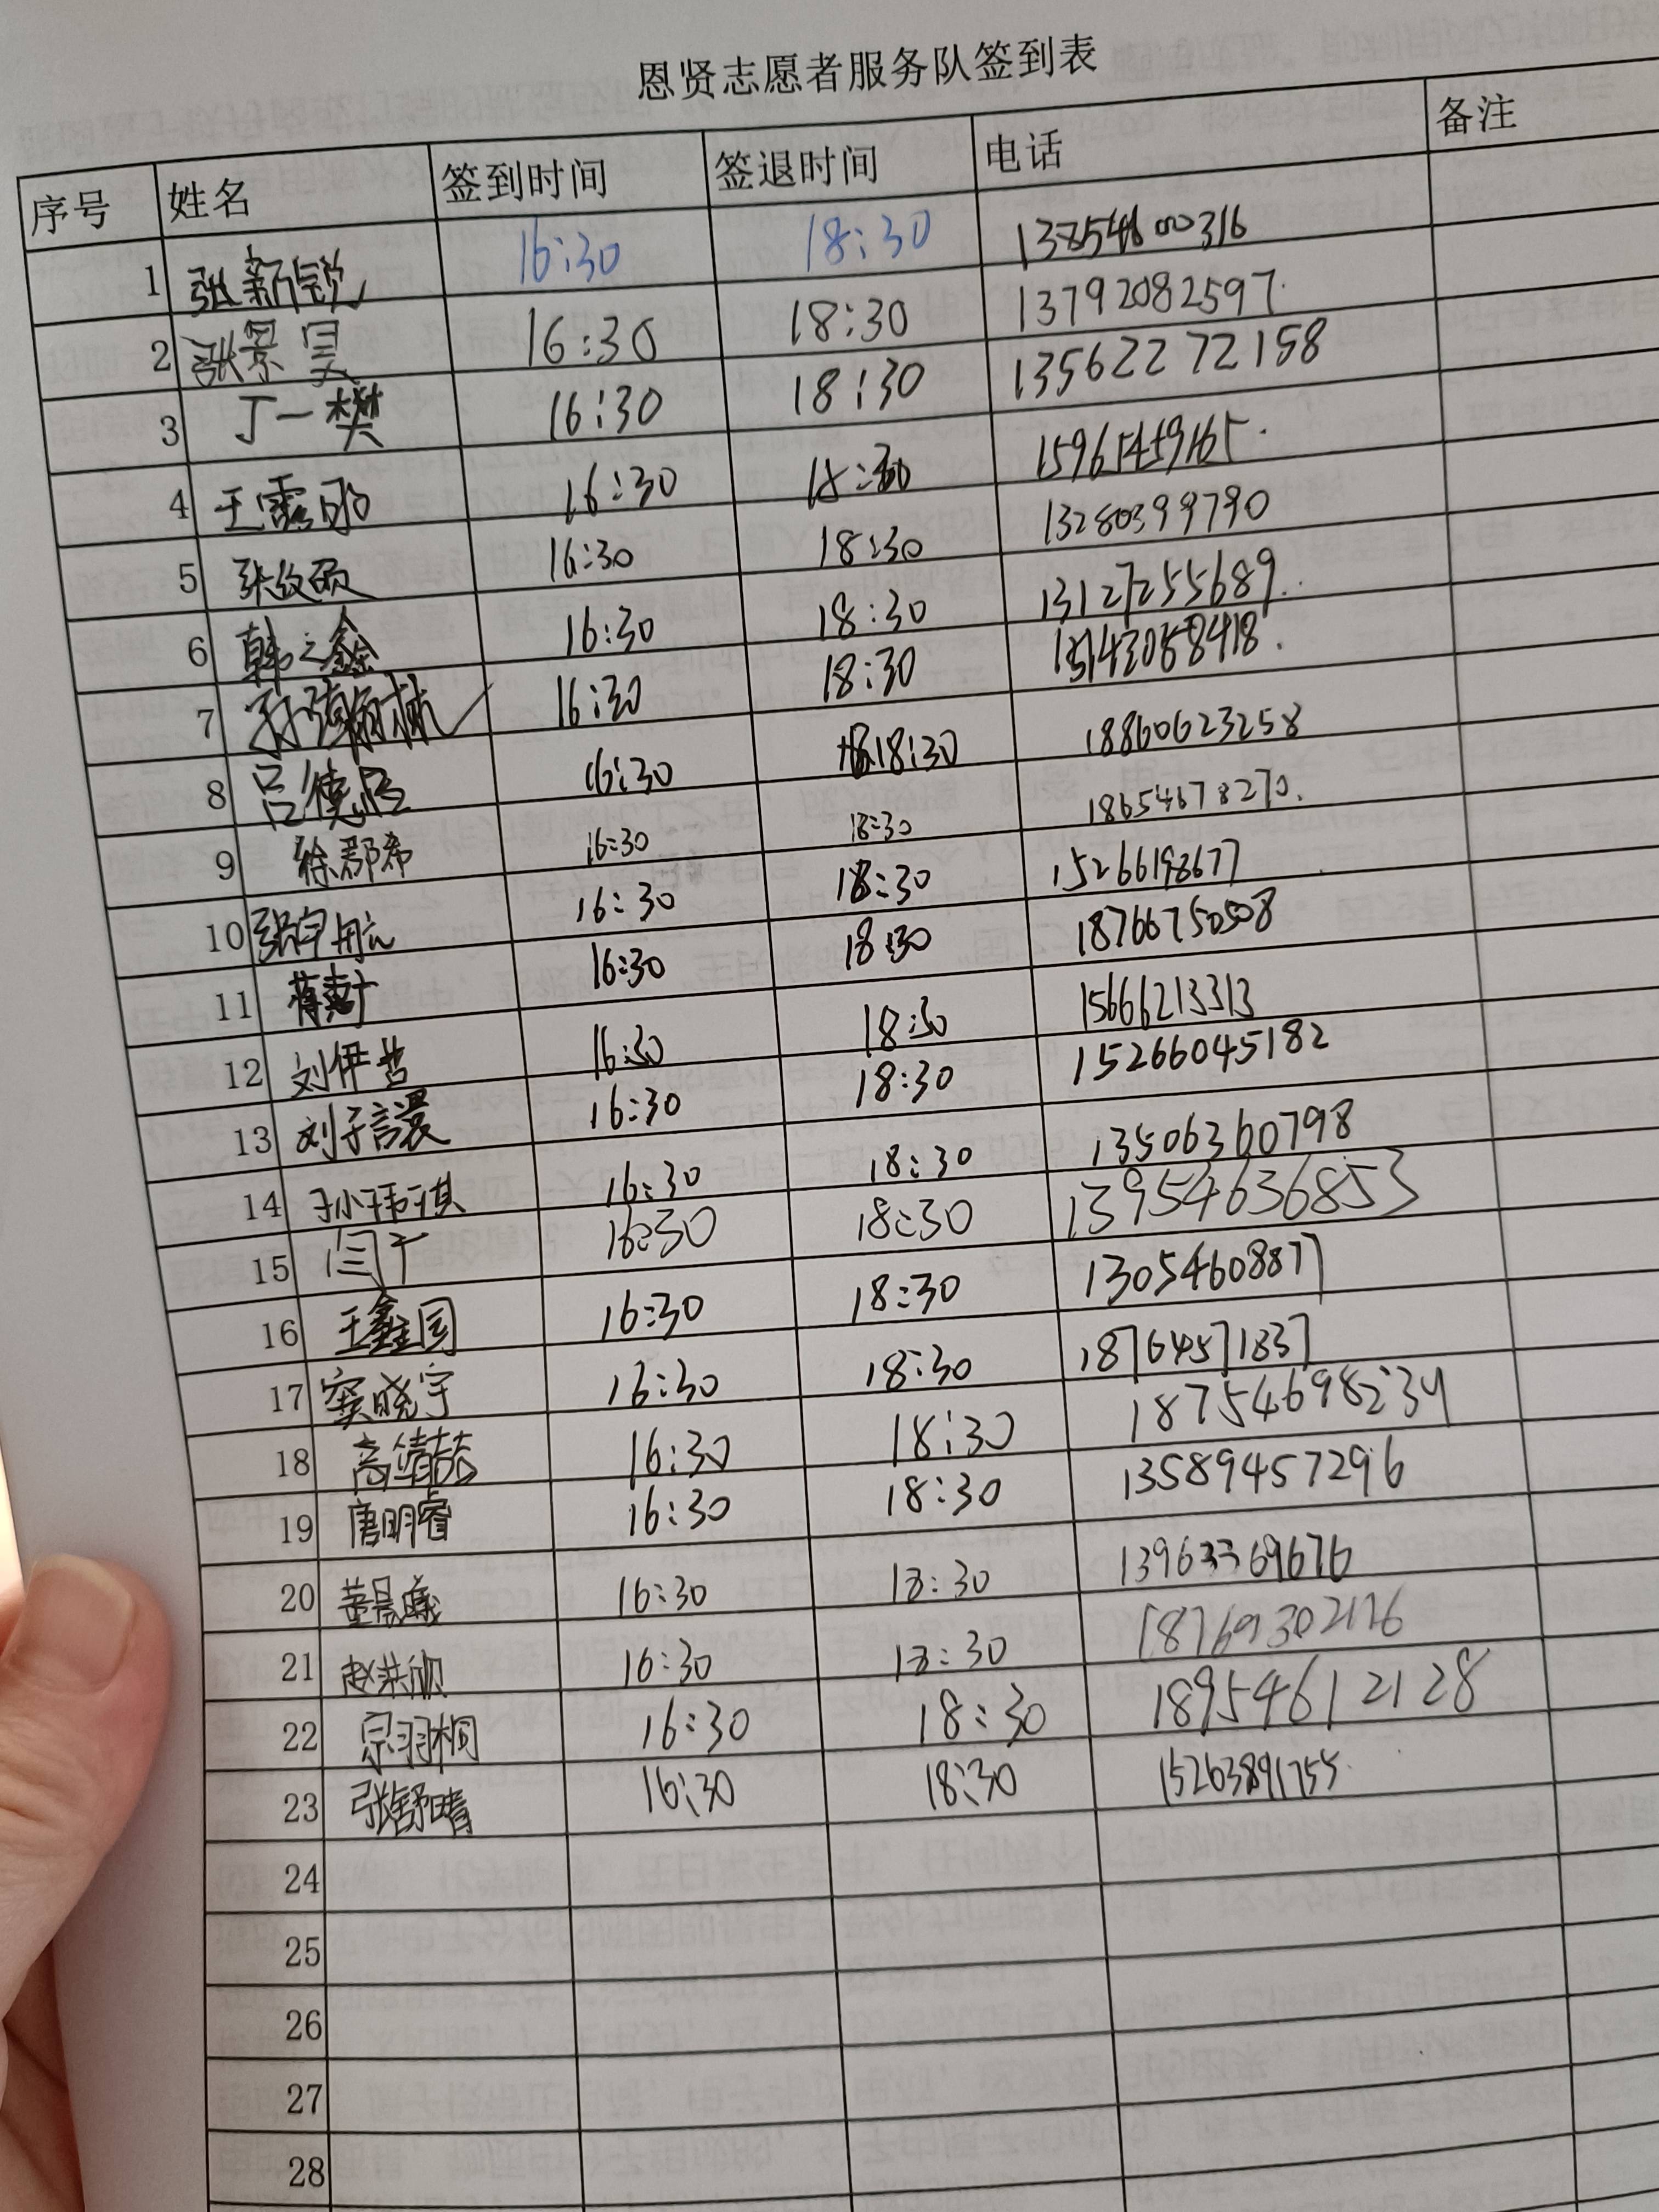 恩贤志愿者服务队签到表
序号 姓名 签到时间 签退时间 电话 备注
1 张新锐 16:30 18:30 13854600316
2 张景昊 16:30 18:30 13792082597
3 丁一樊 16:30 18:30 13562272158
4 王露 16:30 18:30
5 16:30 18:30 13280399790
6 韩之鑫 16:30 18:30 13127255689
7 16:30 18:30
8 吕德 16:30 18:30 18860623258
9 徐郡希 16:30 18:30 18654678270
10 张宇航 16:30 18:30 15266198677
11 16:30 18:30 18766750508
12 刘伊哲 16:30 18:30 15666213313
13 刘子 16:30 18:30 15266045182
14 孙玮琪 16:30 18:30 13506360798
15 闫 16:30 18:30 13954636853
16 王鑫国 16:30 18:30 13054608877
17 窦晓宇 16:30 18:30 18764571837
18 高 16:30 18:30 18754698234
19 唐明睿 16:30 18:30 13589457296
20 董晨曦 16:30 18:30 13963369676
21 赵洪欣 16:30 18:30
22 宗羽桐 16:30 18:30 18954612128
23 张舒晴 16:30 18:30 15263891755
24
25
26
27
28